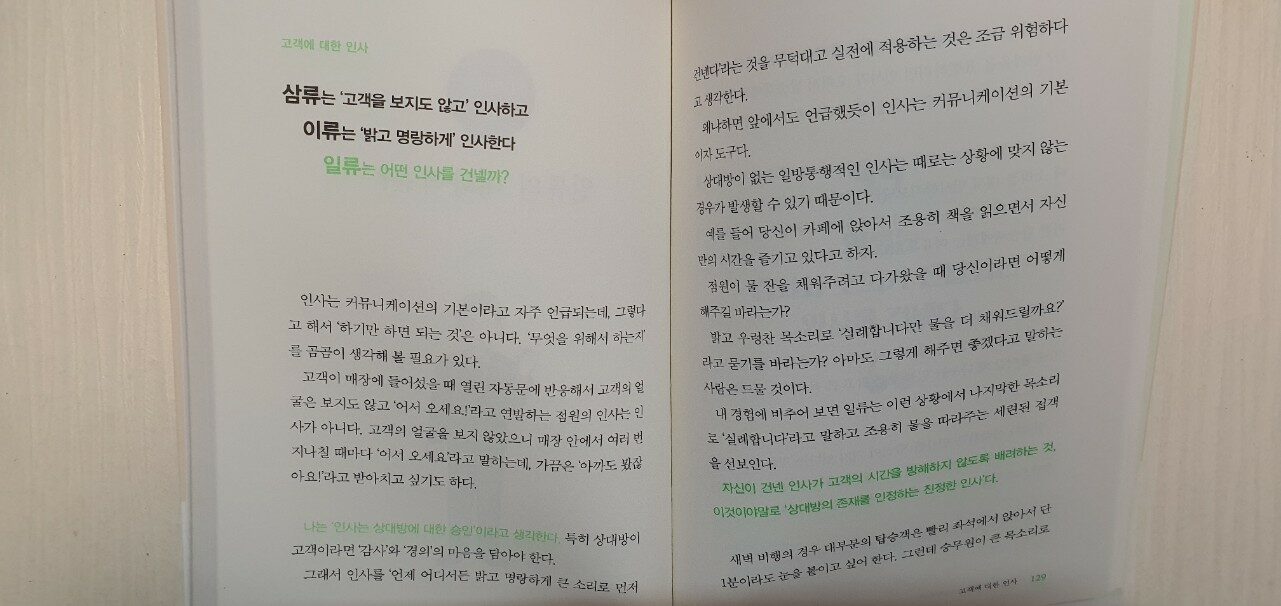 고객에 대한 인사
삼류는 ‘고객을 보지도 않고’ 인사하고
이류는 ‘밝고 명랑하게’ 인사한다
일류는 어떤 인사를 건넬까?
인사는 커뮤니케이션의 기본이라고 자주 언급되는데, 그렇다
고 해서 ‘하기만 하면 되는 것’은 아니다. ‘무엇을 위해서 하는지’
를 곰곰이 생각해 볼 필요가 있다.
고객이 매장에 들어섰을 때 열린 자동문에 반응해서 고객의 얼
굴은 보지도 않고 ‘어서 오세요!’라고 연발하는 점원의 인사는 인
사가 아니다. 고객의 얼굴을 보지 않았으니 매장 안에서 여러 번
지나칠 때마다 ‘어서 오세요’라고 말하는데, 가끔은 ‘아까도 봤잖
아요!’라고 받아치고 싶기도 하다.
나는 ‘인사는 상대방에 대한 승인’이라고 생각한다. 특히 상대방이
고객이라면 ‘감사’와 ‘경의’의 마음을 담아야 한다.
그래서 인사를 ‘언제 어디서든 밝고 명랑하게 큰 소리로 먼저
건넨다’라는 것을 무턱대고 실전에 적용하는 것은 조금 위험하다
고 생각한다.
왜냐하면 앞에서도 언급했듯이 인사는 커뮤니케이션의 기본
이자 도구다.
상대방이 없는 일방통행적인 인사는 때로는 상황에 맞지 않는
경우가 발생할 수 있기 때문이다.
예를 들어 당신이 카페에 앉아서 조용히 책을 읽으면서 자신
만의 시간을 즐기고 있다고 하자.
점원이 물 잔을 채워주려고 다가왔을 때 당신이라면 어떻게
해주길 바라는가?
밝고 우렁찬 목소리로 ‘실례합니다만 물을 더 채워드릴까요?’
라고 묻기를 바라는가? 아마도 그렇게 해주면 좋겠다고 말하는
사람은 드물 것이다.
내 경험에 비추어 보면 일류는 이런 상황에서 나지막한 목소리
로 ‘실례합니다’라고 말하고 조용히 물을 따라주는 세련된 접객
을 선보인다.
자신이 건넨 인사가 고객의 시간을 방해하지 않도록 배려하는 것,
이것이야말로 ‘상대방의 존재를 인정하는 진정한 인사’다.
새벽 비행의 경우 대부분의 탑승객은 빨리 좌석에서 앉아서 단
1분이라도 눈을 붙이고 싶어 한다. 그런데 승무원이 큰 목소리로
고객에 대한 인사 129